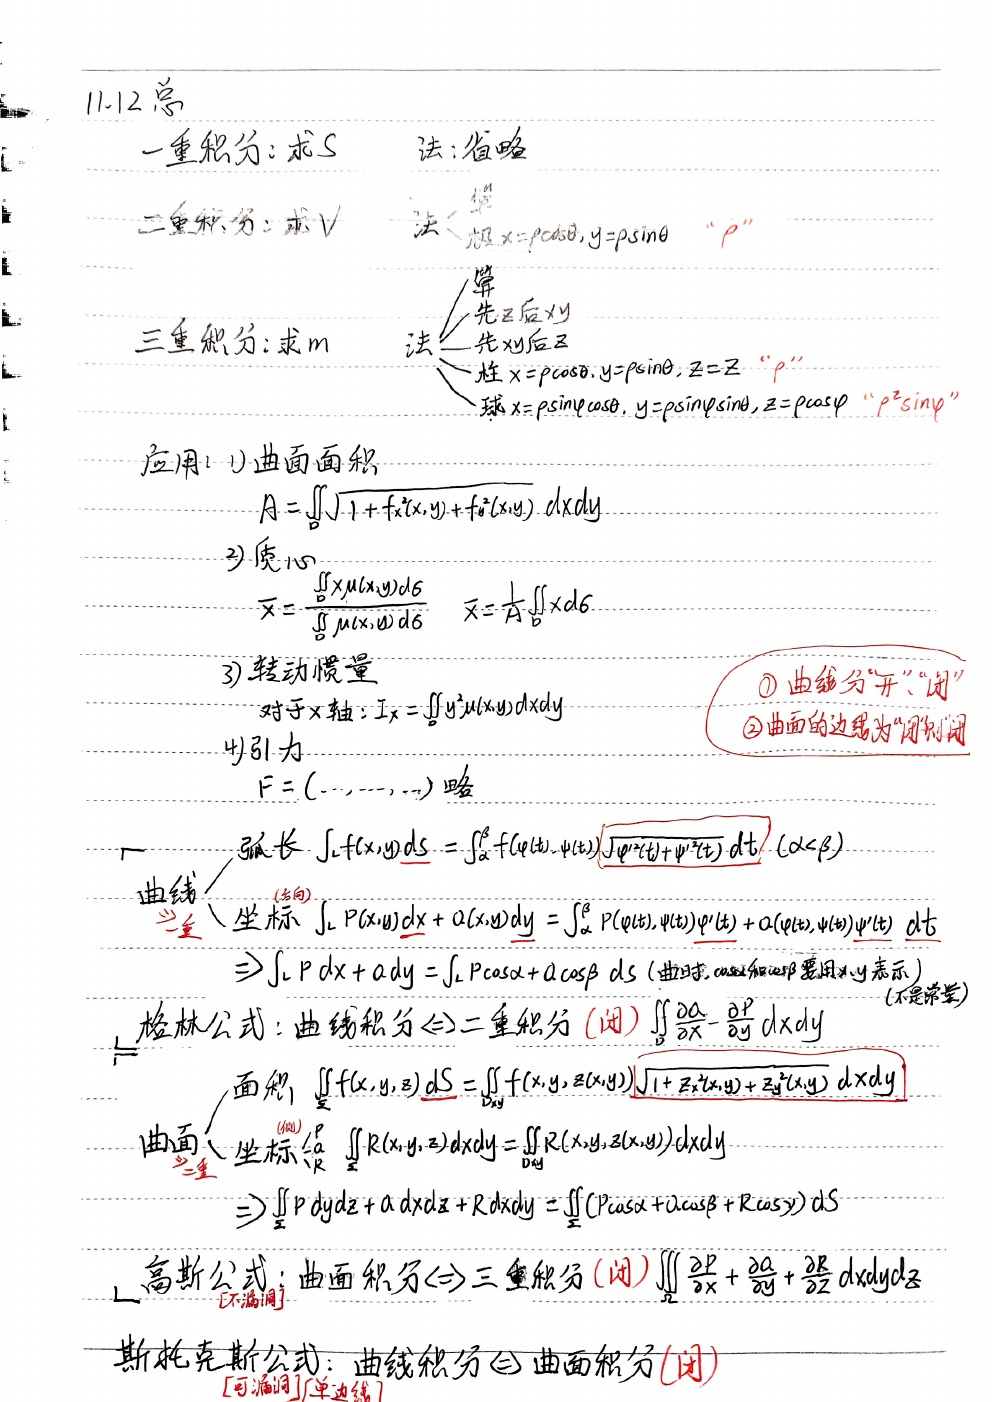 11.12 总
一重积分：求S 法：省略
二重积分：求V 法 算
极 x=ρcosθ, y=ρsinθ “ρ”
三重积分：求m 法 算
先z后xy
先xy后z
柱 x=ρcosθ, y=ρsinθ, z=z “ρ”
球 x=ρsinφcosθ, y=ρsinφsinθ, z=ρcosφ “ρ²sinφ”
应用：1) 曲面面积
A=∬_D √(1+f_x²(x,y)+f_y²(x,y)) dxdy
2) 质心
x̄=∬_D xμ(x,y)dσ / ∬_D μ(x,y)dσ x̄=1/A ∬_D xdσ
3) 转动惯量
对于x轴：I_x=∬_D y²μ(x,y)dxdy
① 曲线分“开”、“闭”
② 曲面的边缘为“闭”则闭
4) 引力
F=(…,…,…) 略
曲线 => 二重
弧长 ∫_L f(x,y)ds=∫_α^β f(φ(t),ψ(t)) √(φ'²(t)+ψ'²(t)) dt (α<β)
坐标 (方向) ∫_L P(x,y)dx+Q(x,y)dy=∫_α^β P(φ(t),ψ(t))φ'(t)+Q(φ(t),ψ(t))ψ'(t) dt
=>∫_L Pdx+Qdy=∫_L Pcosα+Qcosβ ds (曲时, cosα和cosβ要用x,y表示)
(不是常量)
格林公式：曲线积分<=>二重积分 (闭) ∬_D ∂Q/∂x-∂P/∂y dxdy
曲面 => 二重
面积 ∬_Σ f(x,y,z)dS=∬_Dxy f(x,y,z(x,y)) √(1+z_x²(x,y)+z_y²(x,y)) dxdy
坐标 (侧) P Q R ∬_Σ R(x,y,z)dxdy=∬_Dxy R(x,y,z(x,y))dxdy
=>∬_Σ Pdydz+Qdxdz+Rdxdy=∬_Σ (Pcosα+Qcosβ+Rcosγ)dS
高斯公式：曲面积分<=>三重积分 (闭) ∭_Ω ∂P/∂x+∂Q/∂y+∂R/∂z dxdydz
[不漏洞]
斯托克斯公式：曲线积分<=>曲面积分 (闭)
[可漏洞] [单边缘]